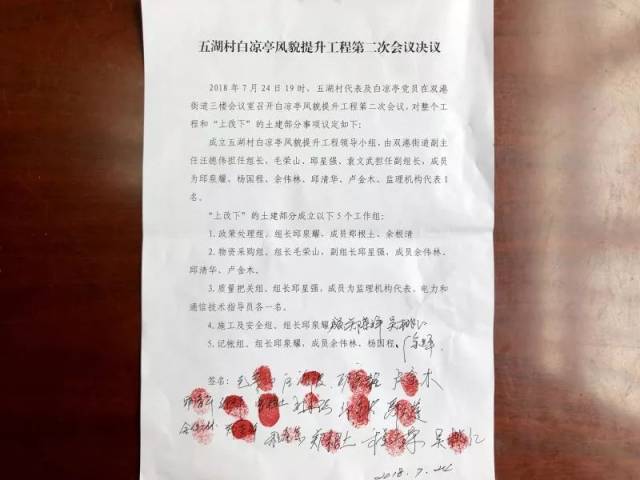 五湖村白凉亭风貌提升工程第二次会议决议
2018年7月24日19时，五湖村代表及白凉亭党员在双港
街道三楼会议室召开白凉亭风貌提升工程第二次会议，对整个工
程和“上改下”的土建部分事项议定如下：
成立五湖村白凉亭风貌提升工程领导小组，由双港街道副主
任汪德伟担任组长，毛荣山、邱星强、袁文武担任副组长，成员
为邱泉耀、杨国程、余伟林、邱清华、卢金木、监理机构代表1
名。
“上改下”的土建部分成立以下5个工作组：
1.政策处理组，组长邱泉耀，成员郑根土、余根清
2.物资采购组，组长毛荣山，副组长邱星强，成员余伟林、
邱清华、卢金木。
3.质量把关组，组长邱星强，成员为监理机构代表、电力和
通信技术指导员各一名。
4.施工及安全组，组长邱泉耀
5.记帐组，组长邱泉耀，成员余伟林、杨国程。
签名：
卢金木
2018.7.24